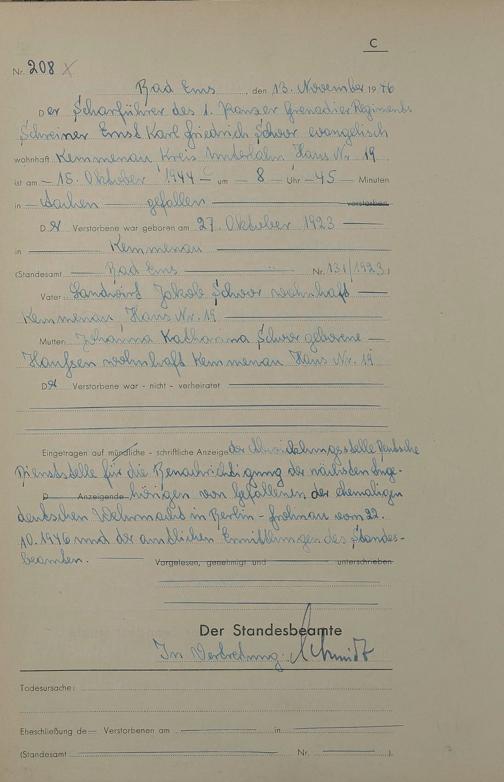 C
Nr. 208
Bad Ems, den 13. November 1946
Der Scharführer des 1. Panzer Grenadier Regiments
Schreiner Ernst Karl Friedrich Schoor evangelisch
wohnhaft Kemmenau Kreis Unterlahn Haus Nr. 19
ist am 15. Oktober 1944 um 8 Uhr 45 Minuten
in Aachen gefallen verstorben.
D er Verstorbene war geboren am 27. Oktober 1923
in Kemmenau
(Standesamt Bad Ems Nr. 131/1923)
Vater: Landwirt Jakob Schoor wohnhaft
Kemmenau Haus Nr. 19
Mutter: Johanna Katharina Schoor geborene
wohnhaft Kemmenau Haus Nr. 19
D er Verstorbene war - nicht - verheiratet
Eingetragen auf mündliche - schriftliche Anzeige der Abwicklungsstelle Deutsche
Dienststelle für die Benachrichtigung der nächsten Ange-
D Anzeigende hörigen von Gefallenen der ehemaligen
deutschen Wehrmacht in Berlin - Frohnau vom 22.
10. 1946 und der amtlichen Ermittlungen des Standes-
beamten. Vorgelesen, genehmigt und unterschrieben
Der Standesbeamte
In Vertretung: Schmidt
Todesursache:
Eheschließung de Verstorbenen am in
(Standesamt Nr. ).